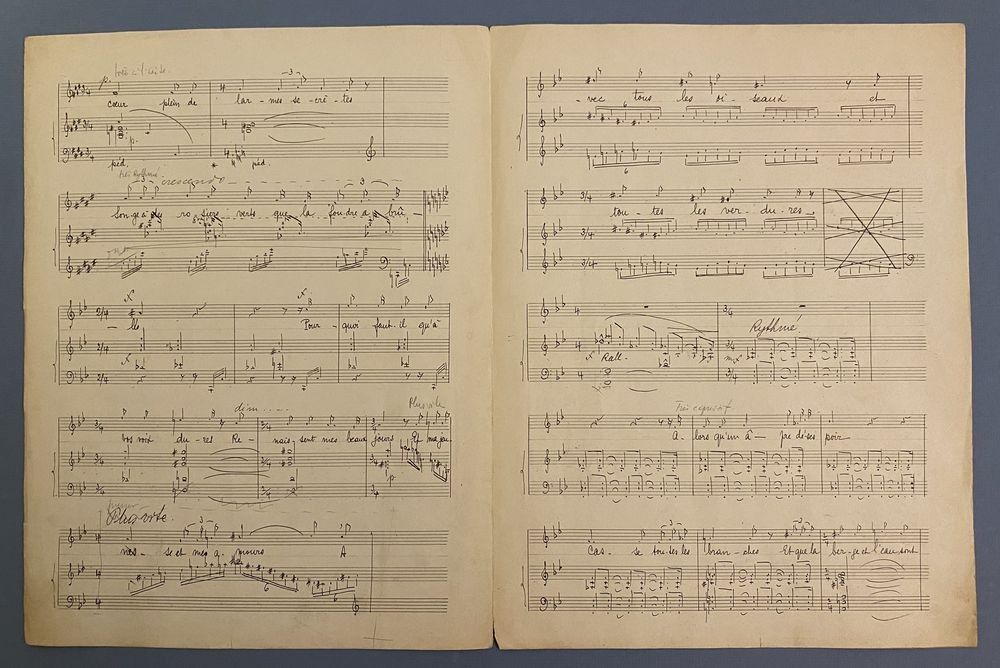 p.
cœur plein de lar - mes se - crè - tes
p.
péd. * péd.
crescendo
Songe à des ro - siers verts que la fou - dre a brû -
- lés Pour - quoi faut-il qu'à
dim....
Plus vite
vos voix du - res Re - nais - sent mes beaux jours Et ma jeu
p.
Plus vite.
nes - se et mes a - mours A
- vec tous les oi - seaux et
tou - tes les ver - du - res
Rythmé.
Rall.
Très expressif
A - lors qu'un â - pre dé - ses poir
Cas - se tou - tes les bran - ches Et que la ber - ge et l'eau sont